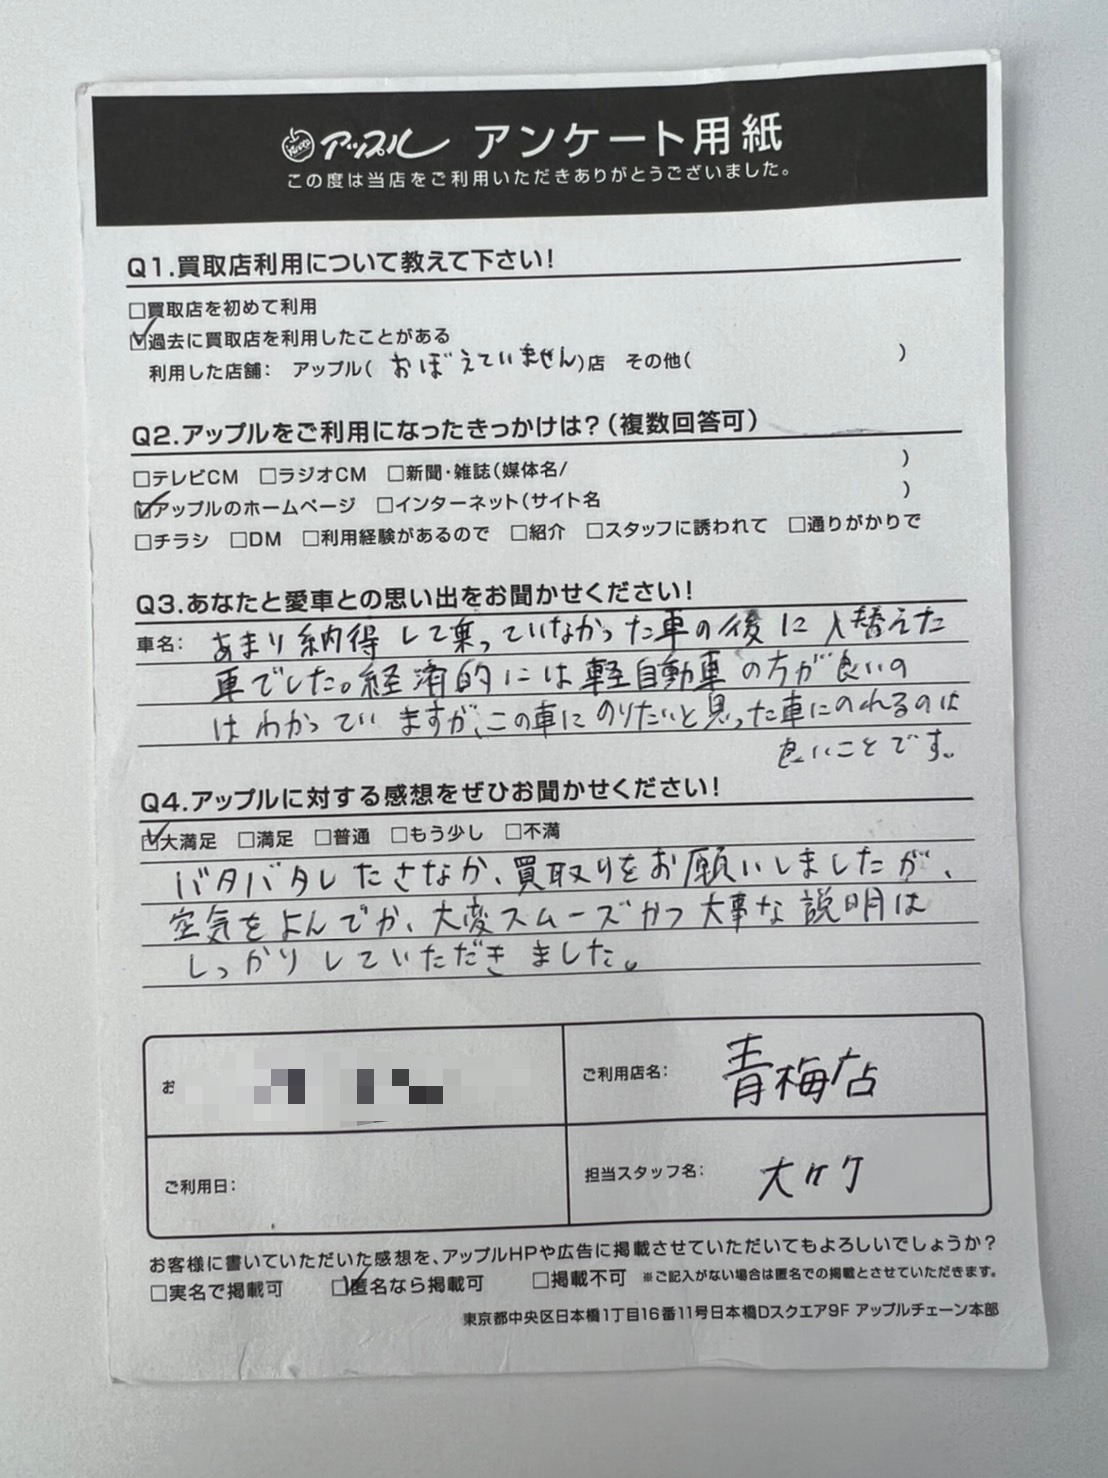 アップル アンケート用紙
この度は当店をご利用いただきありがとうございました。
Q1.買取店利用について教えて下さい!
□買取店を初めて利用
☑過去に買取店を利用したことがある
利用した店舗: アップル(おぼえていません)店 その他( )
Q2.アップルをご利用になったきっかけは?(複数回答可)
□テレビCM □ラジオCM □新聞・雑誌(媒体名/ )
☑アップルのホームページ □インターネット(サイト名 )
□チラシ □DM □利用経験があるので □紹介 □スタッフに誘われて □通りがかりで
Q3.あなたと愛車との思い出をお聞かせください!
車名: あまり納得して乗っていなかった車の後に入替えた
車でした。経済的には軽自動車の方が良いの
はわかっていますが、この車にのりたいと思った車にのれるのは
良いことです。
Q4.アップルに対する感想をぜひお聞かせください!
☑大満足 □満足 □普通 □もう少し □不満
バタバタしたさなか、買取りをお願いしましたが、
空気をよんでか、大変スムーズかつ大事な説明は
しっかりしていただきました。
お
ご利用店名: 青梅店
ご利用日:
担当スタッフ名: 大竹
お客様に書いていただいた感想を、アップルHPや広告に掲載させていただいてもよろしいでしょうか?
□実名で掲載可 ☑匿名なら掲載可 □掲載不可 ※ご記入がない場合は匿名での掲載とさせていただきます。
東京都中央区日本橋1丁目16番11号日本橋Dスクエア9F アップルチェーン本部